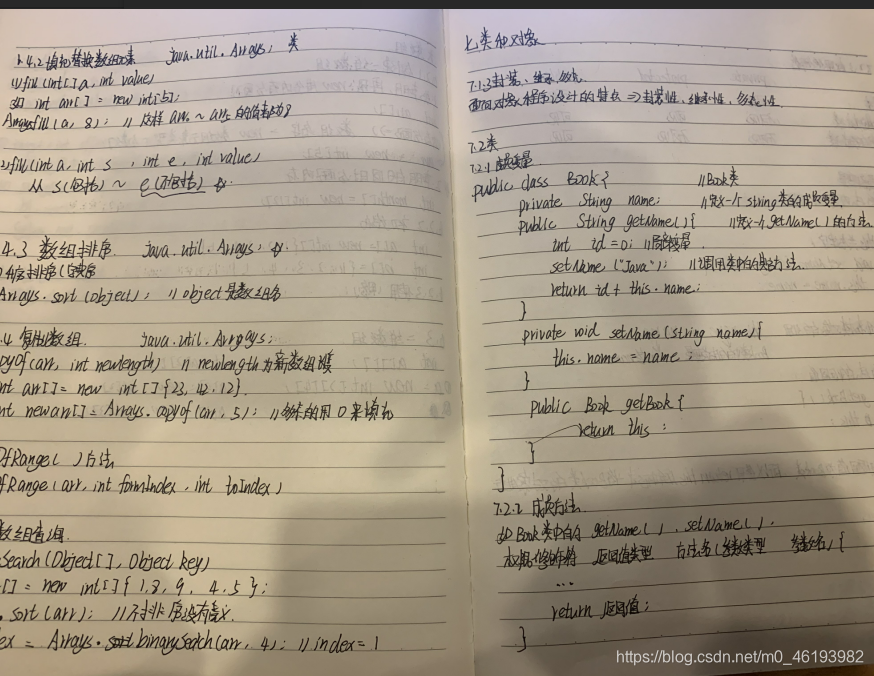 6.4.2 填充替换数组元素 java.util.Arrays; 类
(1) fill(int[] a, int value)
如 int arr[] = new int[5];
Arrays.fill(a, 8); // 这样 arr₀ ~ arr₅ 的值都为8
(2) fill(int a, int s , int e, int value)
从 s(包括) ~ e(不包括)
4.3 数组排序. java.util.Arrays;
Arrays.sort(object); // object是数组名
.4 复制数组. java.util.Arrays;
pyOf(arr, int newlength) // newlength为新数组长度
nt arr[] = new int[]{23, 42, 12}.
nt newarr[] = Arrays.copyOf(arr, 5); // 多余的用 0 来填充
OfRange( )方法
ofRange(arr, int formIndex, int toIndex)
数组查询.
Search(Object[], Object key)
[] = new int[]{1,8, 9, 4, 5};
.sort(arr); // 不排序没有意义.
ex = Arrays.binarySearch(arr, 4); // index = 1
七 类和对象
7.1.3 封装、继承、多态.
面向对象程序设计的特点 => 封装性、继承性、多态性.
7.2 类
7.2.1 成员变量
public class Book{ // Book类
private String name; // 定义一个string类的成员变量
public String getName(){ // 定义一个getName()的方法
int id = 0; // 局部变量.
setName("Java"); // 调用类中的其他方法.
return id + this.name;
}
private void setName(string name){
this.name = name ;
}
public Book getBook{
return this ;
}
}
7.2.2 成员方法
如 Book类中的 getName( ), setName( ).
权限修饰符 返回值类型 方法名(参数类型 参数名){
...
return 返回值;
}
https://blog.csdn.net/m0_46193982